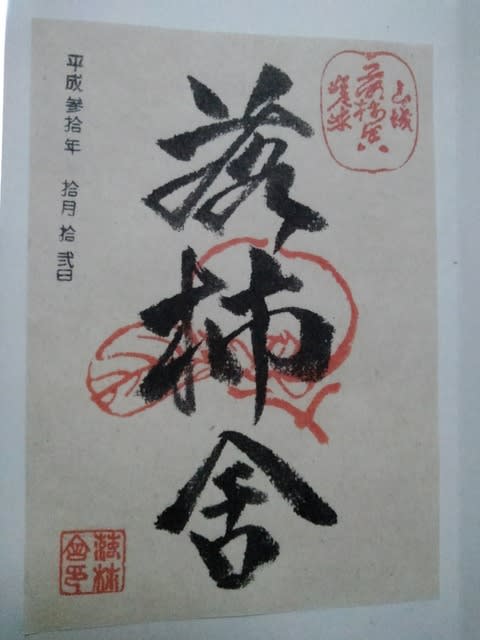 山城
落柿舎
嵯峨
落柿舎
平成参拾年 拾月 拾弐日
落柿
舎印